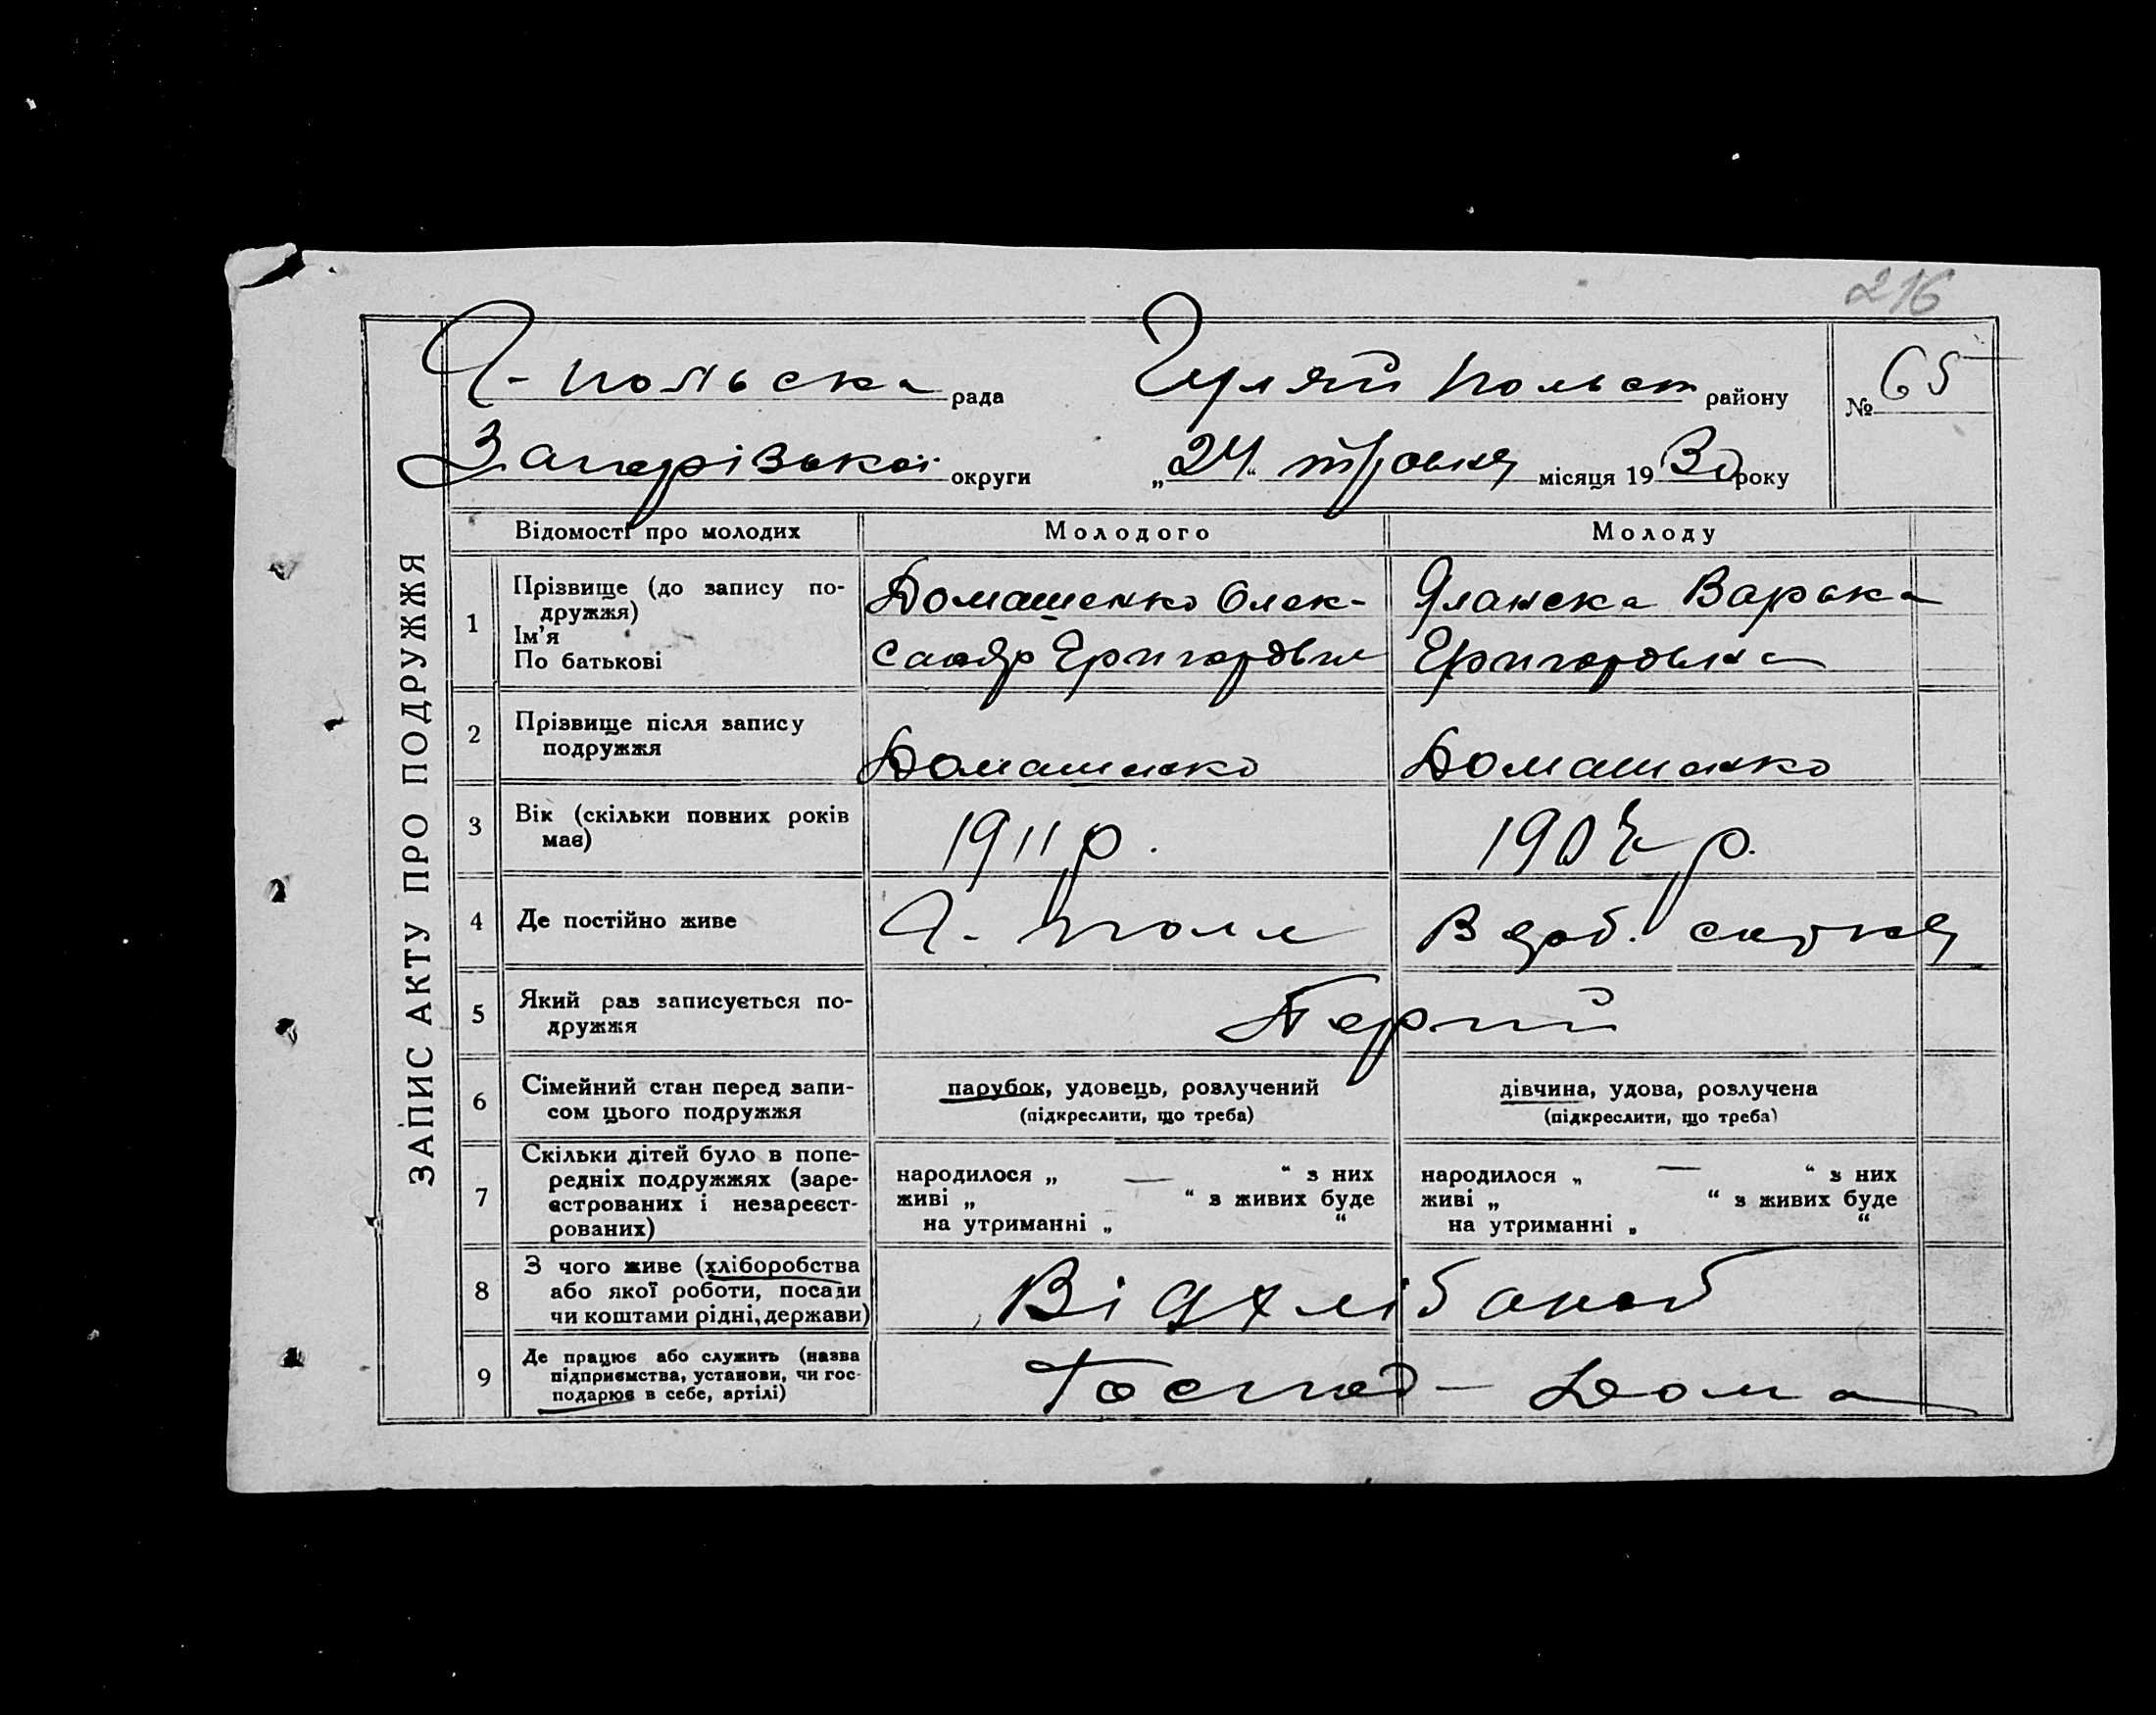 216
Г-польска рада Гуляйпольськ району № 65
Запорізької округи „24“ травня місяця 1930 року
ЗАПИС АКТУ ПРО ПОДРУЖЖЯ
Відомості про молодих Молодого Молоду
1 Прізвище (до запису по-
дружжя)
Ім'я
По батькові
Домашенко Олек-
сандр Григорович
Яланска Варька
Григоровна
2 Прізвище після запису
подружжя
Домашенко Домашенко
3 Вік (скільки повних років
має)
1911 р. 1907 р.
4 Де постійно живе Г. поле
5 Який раз записується по-
дружжя
Перший
6 Сімейний стан перед запи-
сом цього подружжя
парубок, удовець, розлучений
(підкреслити, що треба)
дівчина, удова, розлучена
(підкреслити, що треба)
7 Скільки дітей було в попе-
редніх подружжях (заре-
єстрованих і незареєст-
рованих)
народилося „ — “ з них
живі „ “ з живих буде
на утриманні „ “
народилося „ — “ з них
живі „ “ з живих буде
на утриманні „ “
8 З чого живе (хліборобства
або якої роботи, посади
чи коштами рідні, держави)
Від хліб
9 Де працює або служить (назва
підприємства, установи, чи гос-
подарює в себе, артілі)
Господ - Дома